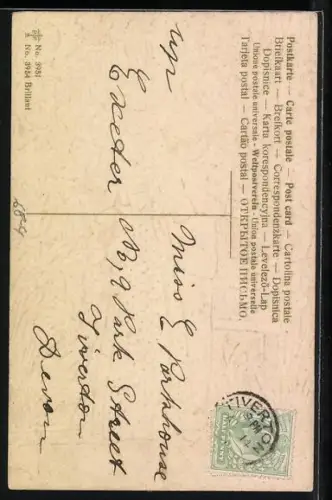 Postkarte — Carte postale — Post card — Cartolina postale
Briefkaart — Brefkort — Correspondenzkarte — Dopisnica
Dopisnice — Karta korespondencyjna — Levelező-Lap
Unione postale universale - Weltpostverein - Union postale universelle
Tarjeta postal — Cartão postal — ОТКРЫТОЕ ПИСЬМО.
TIVERTON
Miss E Parkhouse
Exeter
Park Street
Tiverton
Devon
No. 3984 Brillant